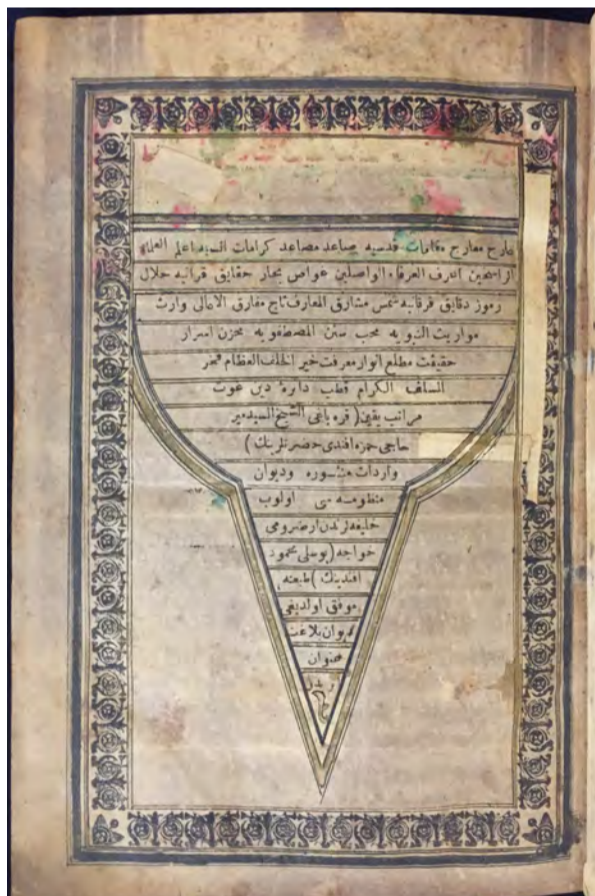 معارج مقامات قدسیه صاعد مصاعد کرامات انسیه اعلم العلماء
الراسخین اعرف العرفاء الواصلین غواص بحار حقایق قرآنیه حلال
رموز دقایق فرقانیه شمس مشارق المعارف تاج مفارق الامالی وارث
مواریث النبویه محب سنن المصطفویه مخزن اسرار
حقیقت مطلع انوار معرفت خیر الخلف العظام فخر
السلف الکرام قطب دائرهٔ دین غوث
مراتب یقین (قره باغی الشیخ السید میر
حاجی حمزه افندی حضرتلرینك)
واردات منثوره ودیوان
منظومه سی اولوب
خلیفه لرندن ارضرومی
خواجه (یوسلی محمود
افندینك) طبعنه
موفق اولدیغی
دیوان بلاغت
عنوان